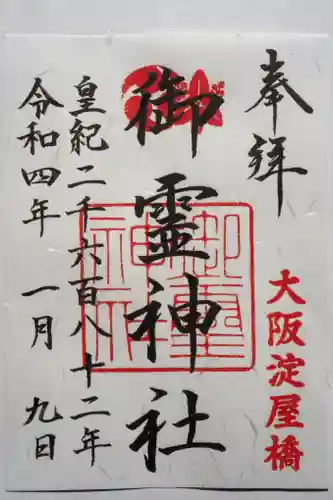 奉拝
大阪淀屋橋
御霊神社
皇紀二千六百八十二年
令和四年 一月 九日
御霊神社